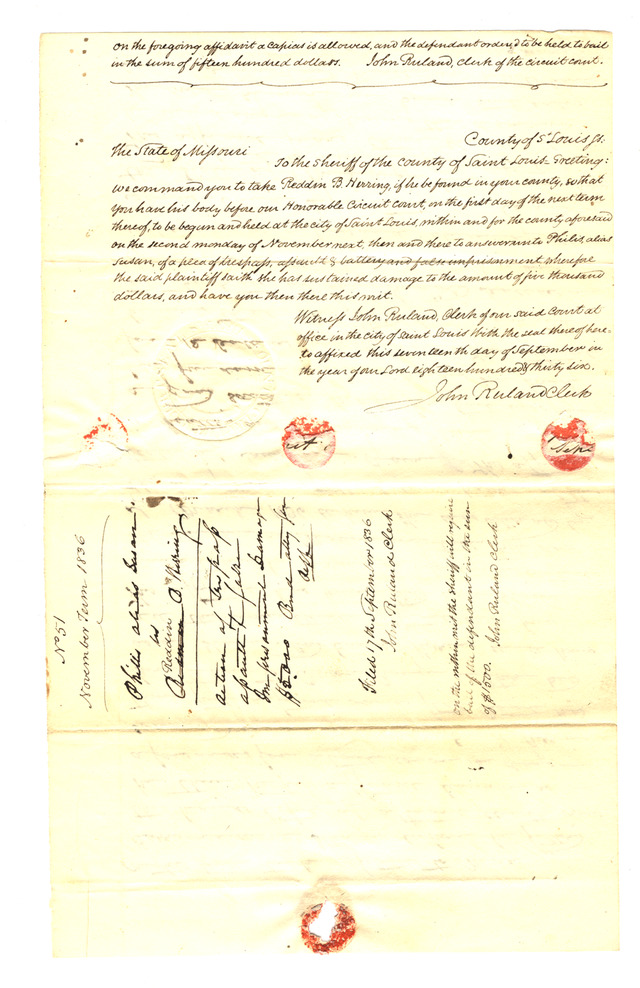 on the foregoing affidavit a capias is allowed, and the defendant ordered to be held to bail
in the sum of fifteen hundred dollars. John Ruland, clerk of the circuit court.
County of St Louis ss:
The State of Missouri
To the sheriff of the county of Saint Louis - Greeting:
we command you to take Reddin B. Herring, if he be found in your county, so that
you have his body before our Honorable Circuit court, on the first day of the next term
thereof, to be begun and held at the city of Saint Louis, within and for the county aforesaid
on the second monday of November next, then and there to answer unto Philis, alias
Susan, of a plea of trespass, assault & battery and false imprisonment wherefore
the said plaintiff saith she has sustained damage to the amount of five thousand
dollars, and have you then there this writ.
Witness John Ruland, Clerk of our said Court at
office in the city of Saint Louis with the seal thereof here-
to affixed this seventeenth day of September in
the year of our Lord eighteen hundred & thirty six.
John Ruland Clerk
No 51
November Term 1836
Philis alias Susan
vs
Reddin B Herring
action of trespass
assault & false
Imprisonment Damage
$5.000
Filed 17th September 1836
John Ruland Clerk
on the within writ the sheriff will require
bail of the defendant in the sum
of $1500. John Ruland Clerk